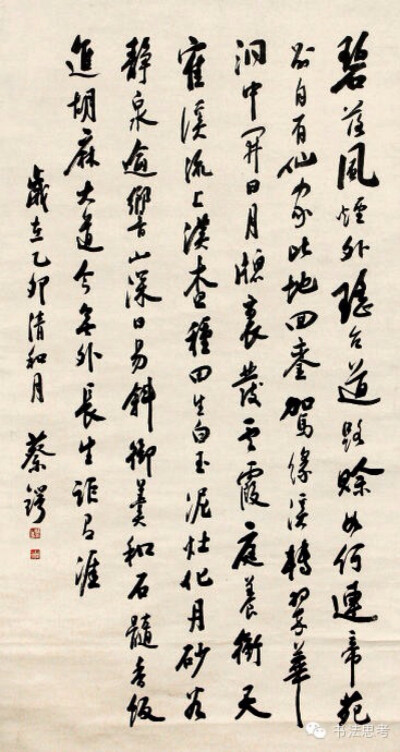 碧落風煙外瑤台道路賒如何連帝苑
別自有仙家此地回鑾駕緣溪轉翠華
洞中開日月牕裏發雲霞庭養衝天
寉溪流上漢查種田生白玉泥灶化丹砂谷
靜泉逾響山深日易斜御羹和石髓香飯
進胡麻大道今無外長生詎有涯
歲在乙卯清和月 蔡鍔
书法思考